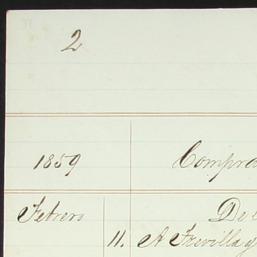 2
1859 Compra
Febrero De
11. A Trevilla y